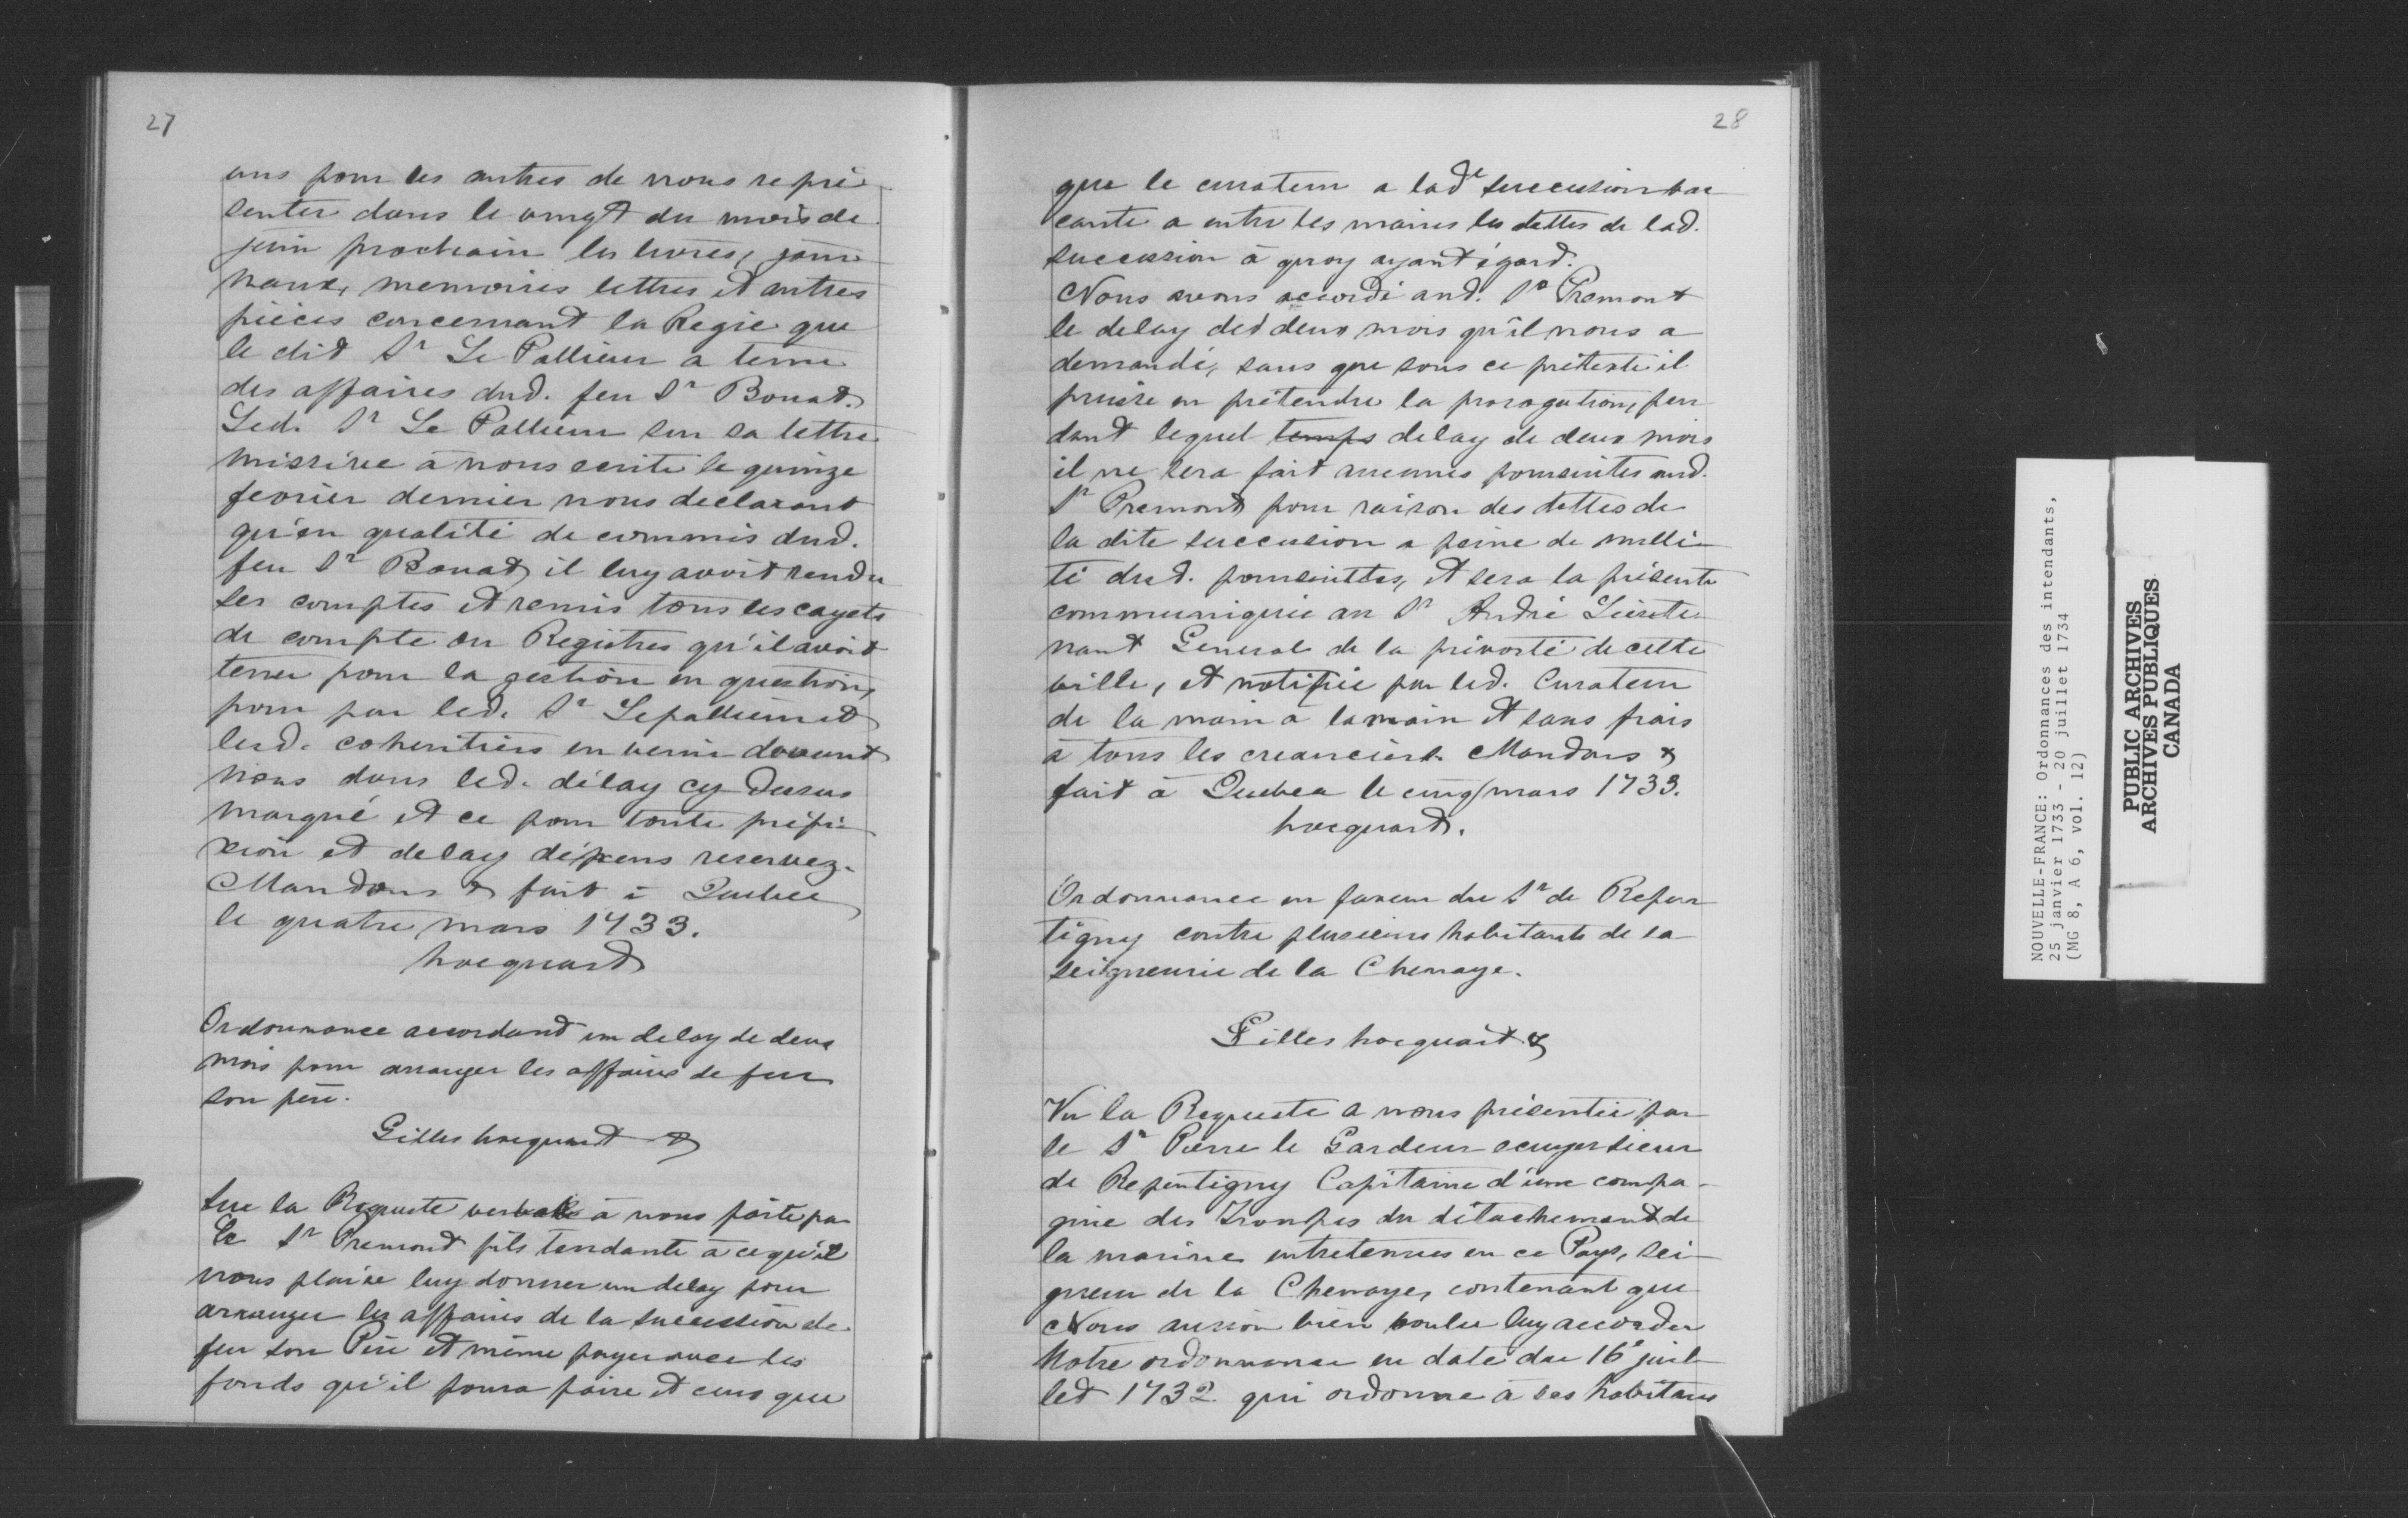 27
uns pour les autres de nous repré-
senter dans le vingt du mois de
juin prochain les livres, jour-
naux, memoires lettres et autres
pièces concernant la Regie que
le dit Sr Le Pallieur a tenu
des affaires dud. feu Sr Bouat.
Led. Sr Le Pallieur sur sa lettre
missive à nous ecrite le quinze
fevrier dernier nous declarant
qu'en qualité de commis dud.
feu Sr Bouat il luy avoit rendu
ses comptes et remis tous les cayets
de compte ou Registres qu'il avoit
tenu pour la gestion en question,
pour par led. Sr Lepallieur et
lesd. coheritiers en venir devant
nous dans led. délay cy dessus
marqué et ce pour toute prefi-
xion et delay dépens reservez.
Mandons & fait à Quebec
le quatre mars 1733.
hocquart
Ordonnance accordant un delay de deux
mois pour arranger les affaires de feu
son père.
Gilles hocquart &
Sur la Requeste verballe à nous faite par
le Sr Premont fils tendante à ce qu'il
nous plaise luy donner un delay pour
arranger les affaires de la succession de
feu son Père et même payer avec les
fonds qu'il poura faire et ceux que
28
que le curateur a lade succession va-
cante a entre les mains les dettes de lad.
succession à quoy ayant égard.
Nous avons accordé aud. Sr Premont
le delay des deux mois qu'il nous a
demandé, sans que sous ce prétexte il
puisse en prétendre la prorogation, pen-
dant lequel temps delay de deux mois
il ne sera fait aucunes poursuites aud.
Sr Premont pour raison des dettes de
la dite succession a peine de nulli-
té desd. poursuittes, et sera la présente
communiquée au Sr André Lieute-
nant General de la prévosté de cette
ville, et notifiée par led. Curateur
de la main à la main et sans frais
à tous les creanciers. Mandons &
fait à Quebec le cinq mars 1733.
hocquart.
Ordonnance en faveur du Sr de Repen-
tigny contre plusieurs habitants de la
seigneurie de la Chenaye.
Gilles hocquart &
Vu la Requeste a nous présentée par
le Sr Pierre le Gardeur ecuyer sieur
de Repentigny Capitaine d'une compa-
gnie des Troupes du détachement de
la marine entretenues en ce Pays, sei-
gneur de la Chenaye, contenant que
Nous aurion bien voulu luy accorder
Notre ordonnance en date du 16e juil-
let 1732 qui ordonne à ses habitans
NOUVELLE-FRANCE: Ordonnances des intendants,
25 janvier 1733 - 20 juillet 1734
(MG 8, A 6, vol. 12)
PUBLIC ARCHIVES
ARCHIVES PUBLIQUES
CANADA